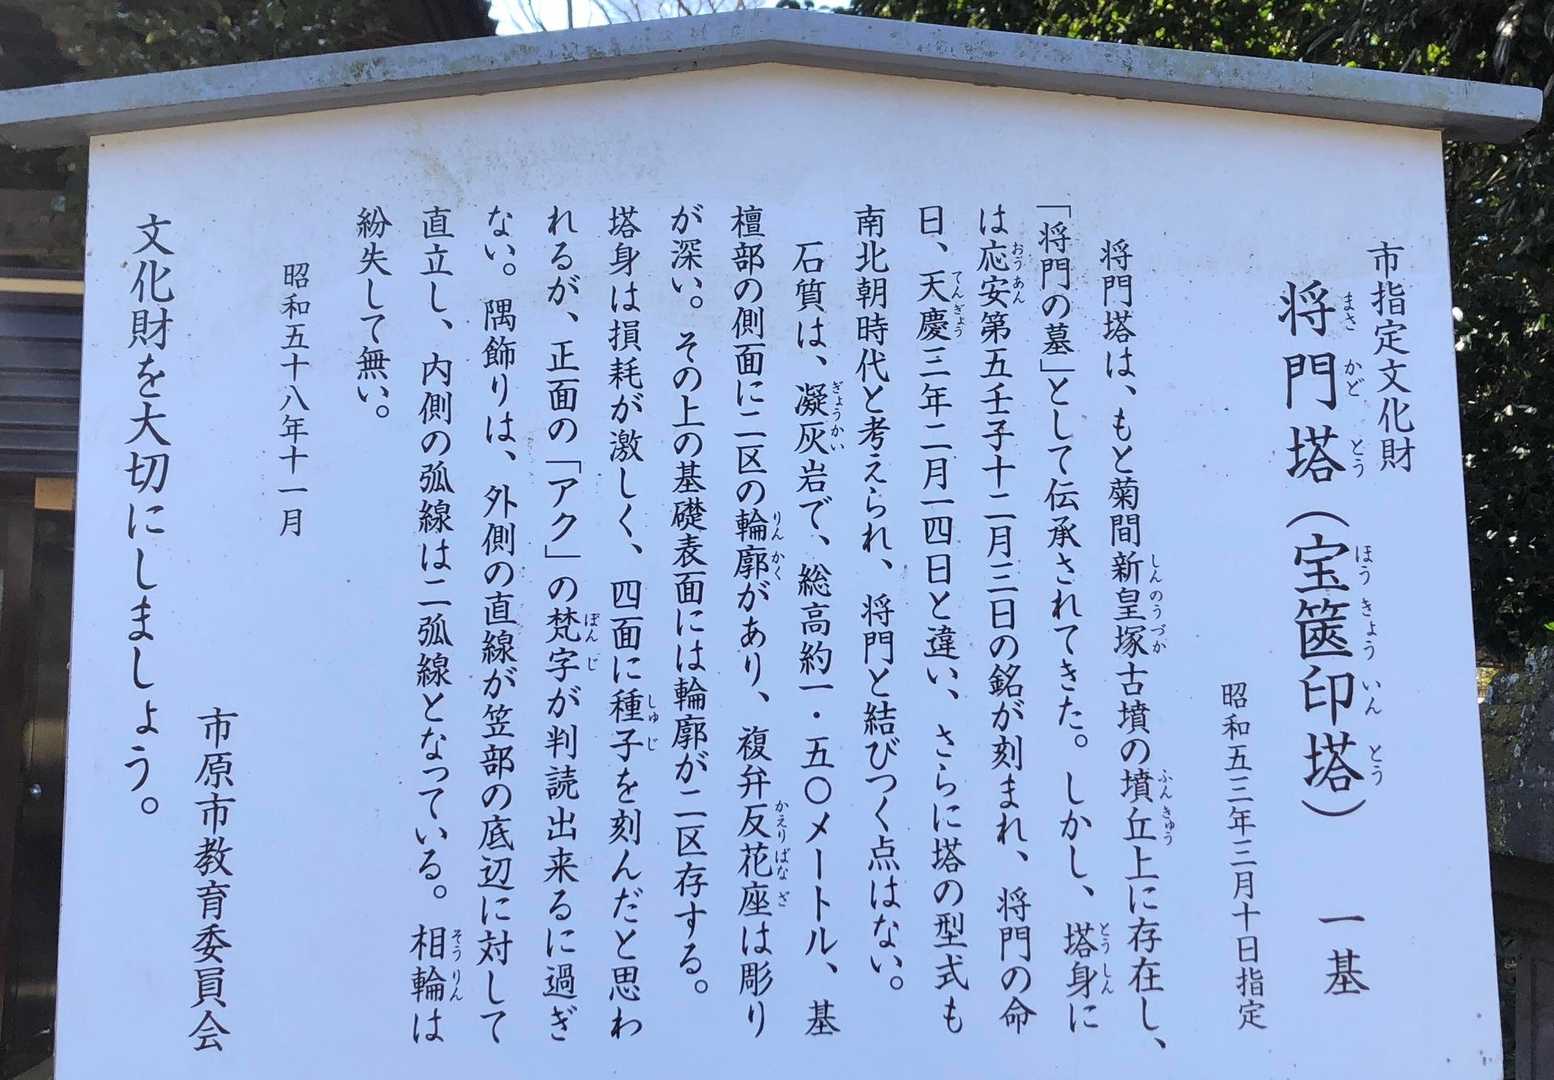 市指定文化財
将門塔（宝篋印塔）　一基
昭和五三年三月十日指定
将門塔は、もと菊間新皇塚古墳の墳丘上に存在し、
「将門の墓」として伝承されてきた。しかし、塔身に
は応安第五壬子十二月三日の銘が刻まれ、将門の命
日、天慶三年二月一四日と違い、さらに塔の型式も
南北朝時代と考えられ、将門と結びつく点はない。
石質は、凝灰岩で、総高約一・五〇メートル、基
檀部の側面に二区の輪廓があり、複弁反花座は彫り
が深い。その上の基礎表面には輪廓が二区存する。
塔身は損耗が激しく、四面に種子を刻んだと思わ
れるが、正面の「アク」の梵字が判読出来るに過ぎ
ない。隅飾りは、外側の直線が笠部の底辺に対して
直立し、内側の弧線は二弧線となっている。相輪は
紛失して無い。
昭和五十八年十一月
市原市教育委員会
文化財を大切にしましょう。